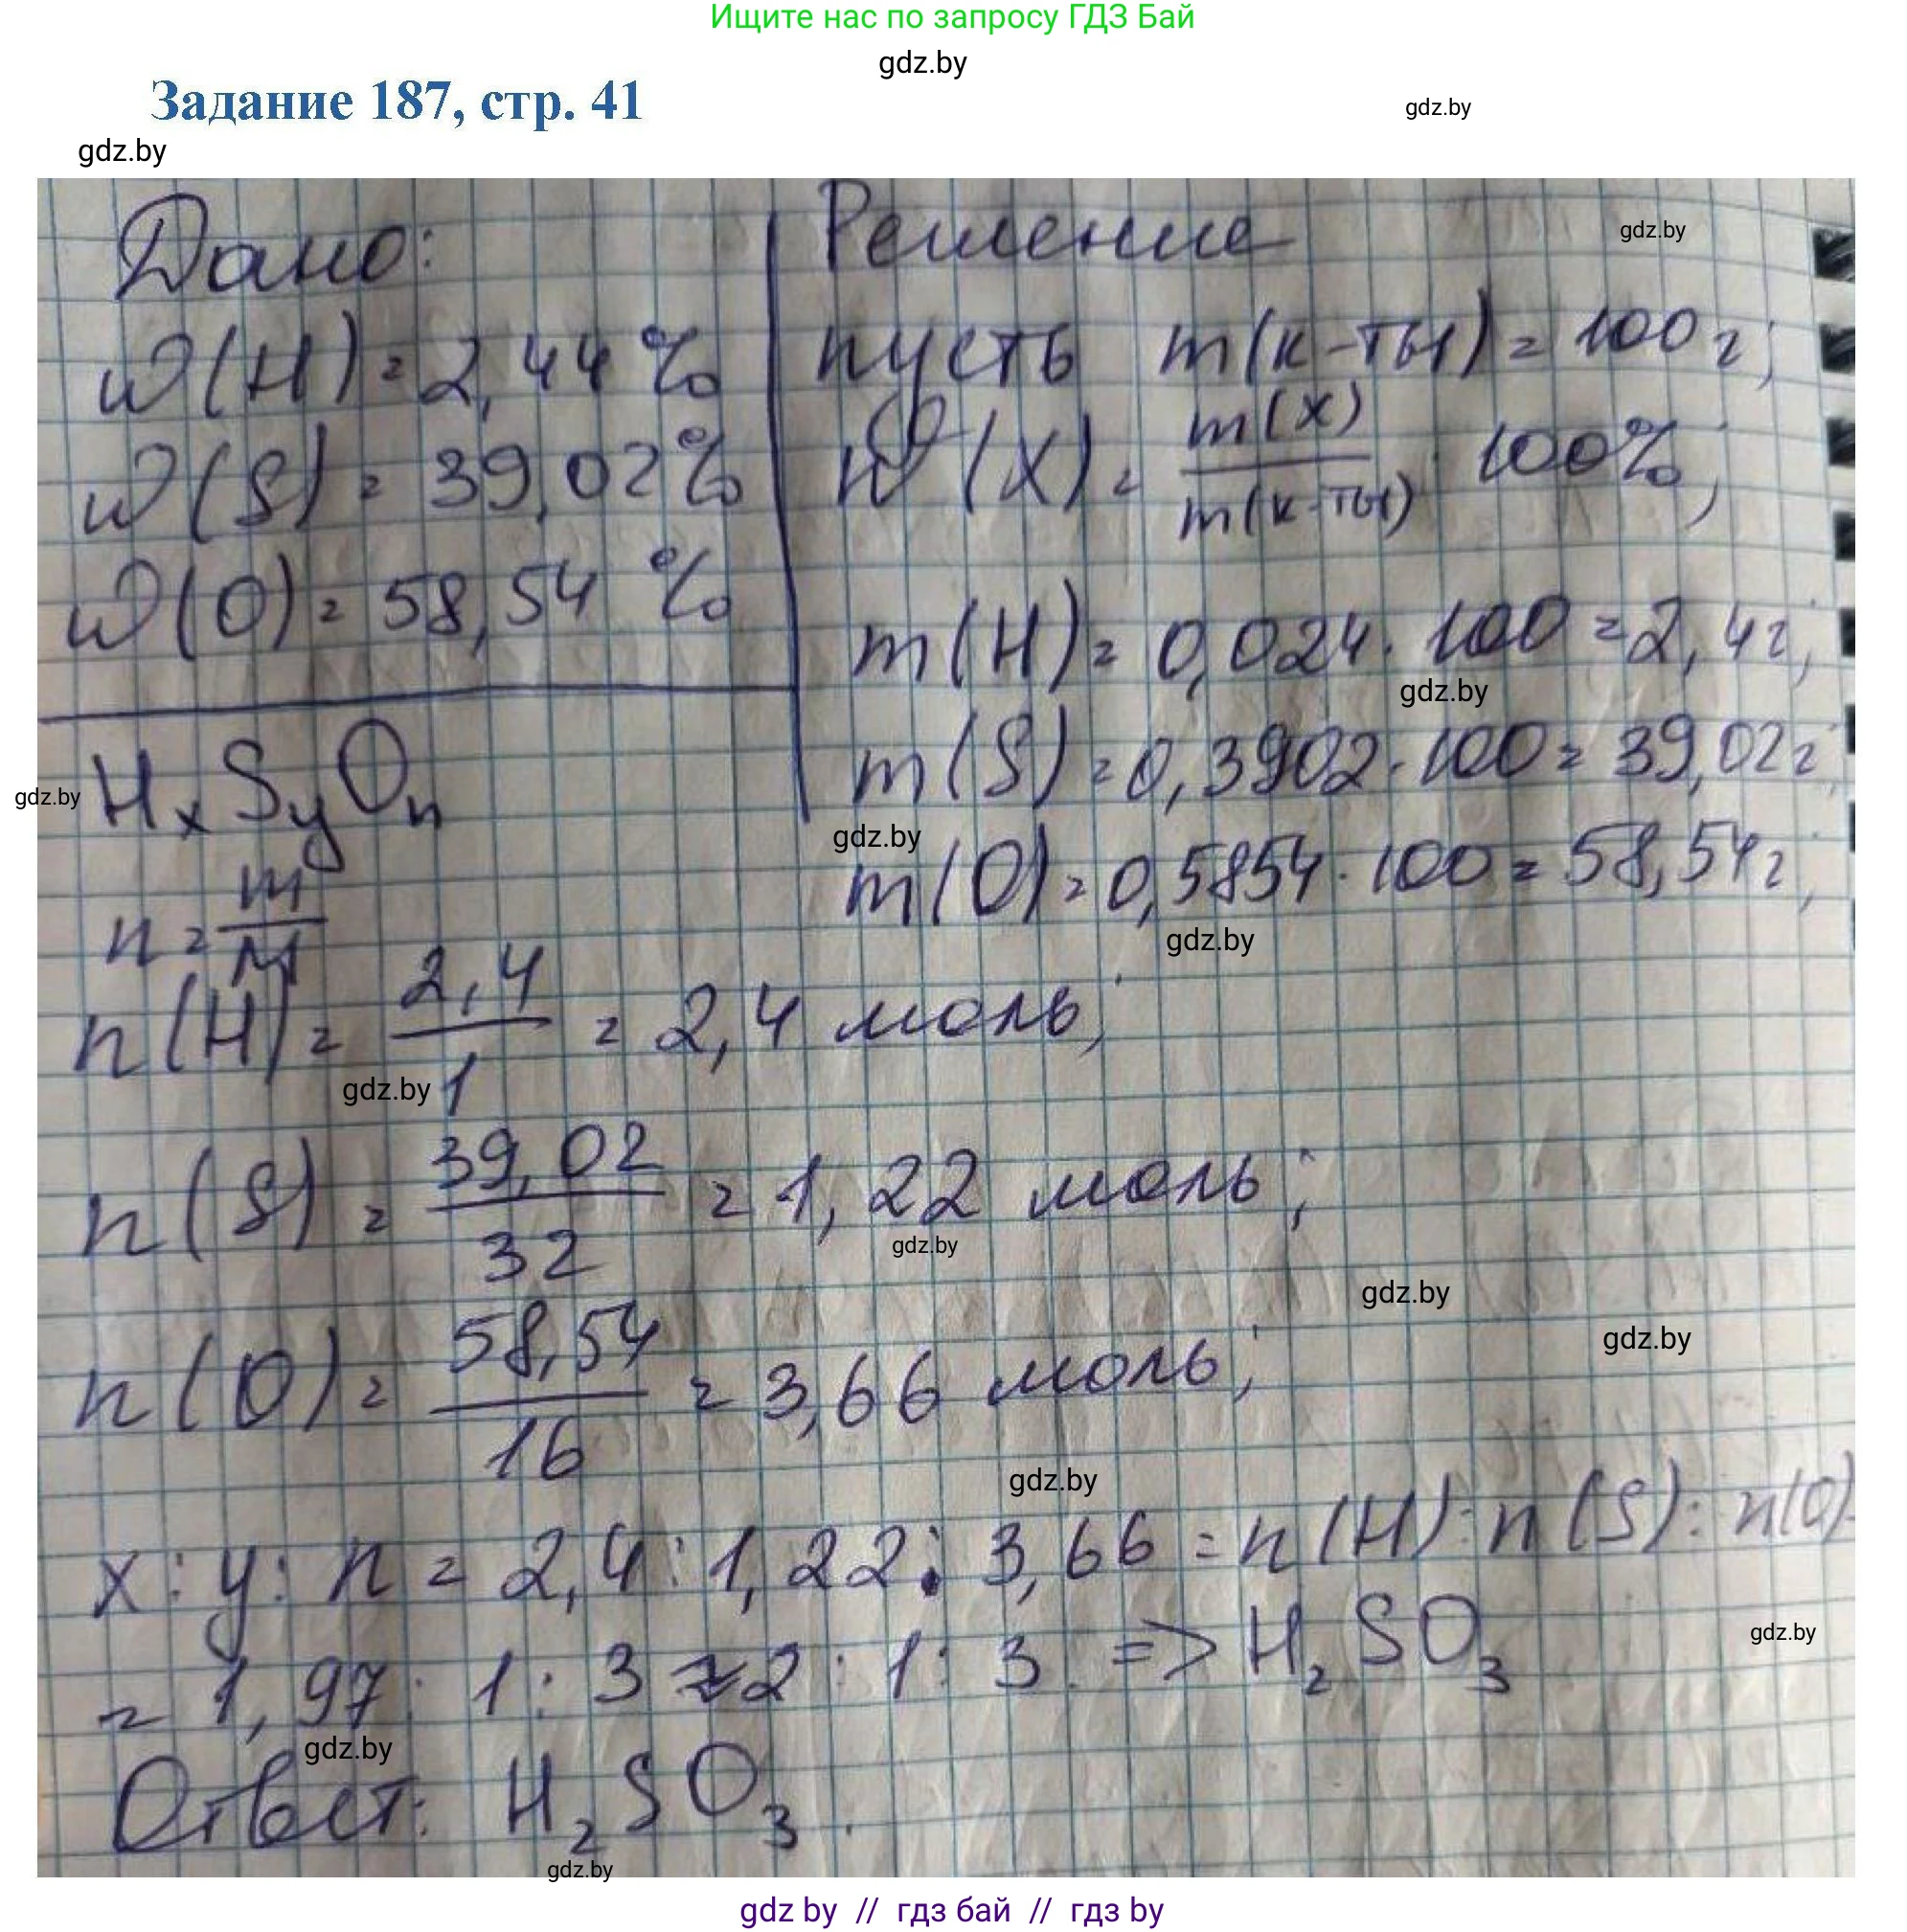 Ищите нас по запросу ГДЗ Бай
gdz.by
Задание 187, стр. 41
gdz.by
gdz.by
Дано:
W(H) = 2,44 %
W(S) = 39,02 %
W(O) = 58,54 %
Решение
gdz.by
пусть m(к-ты) = 100 г;
W(X) = m(X) / m(к-ты) · 100%;
m(H) = 0,024 · 100 = 2,4 г;
gdz.by
m(S) = 0,3902 · 100 = 39,02 г;
gdz.by
m(O) = 0,5854 · 100 = 58,54 г;
gdz.by
HxSyOn
gdz.by
n = m / M
n(H) = 2,4 / 1 = 2,4 моль;
gdz.by
n(S) = 39,02 / 32 = 1,22 моль;
gdz.by
gdz.by
n(O) = 58,54 / 16 = 3,66 моль;
gdz.by
gdz.by
x : y : n = 2,4 : 1,22 : 3,66 = n(H) : n(S) : n(O)
= 1,97 : 1 : 3 ≈ 2 : 1 : 3. => H₂SO₃
gdz.by
gdz.by
Ответ: H₂SO₃.
gdz.by
gdz by // гдз бай // гдз by